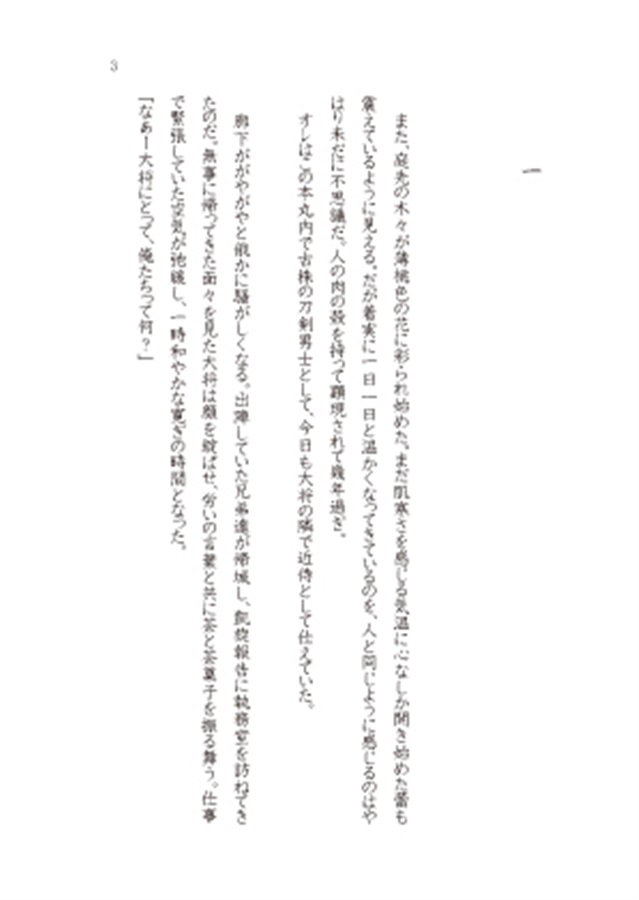 一
また、庭先の木々が薄桃色の花に彩られ始めた。まだ肌寒さを感じる気温に心なしか開き始めた蕾も
震えているように見える。だが着実に一日一日と温かくなってきているのを、人と同じように感じるのはや
はり未だに不思議だ。人の肉の殻を持って顕現されて幾年過ぎ。
オレはこの本丸内で古株の刀剣男士として、今日も大将の隣で近侍として仕えていた。
廊下ががやがやと俄かに騒がしくなる。出陣していた兄弟達が帰城し、凱旋報告に執務室を訪ねてき
たのだ。無事に帰ってきた面々を見た大将は顔を綻ばせ、労いの言葉と共に茶と茶菓子を振る舞う。仕事
で緊張していた空気が弛緩し、一時和やかな寛ぎの時間となった。
「なぁー大将にとって、俺たちって何？」
3